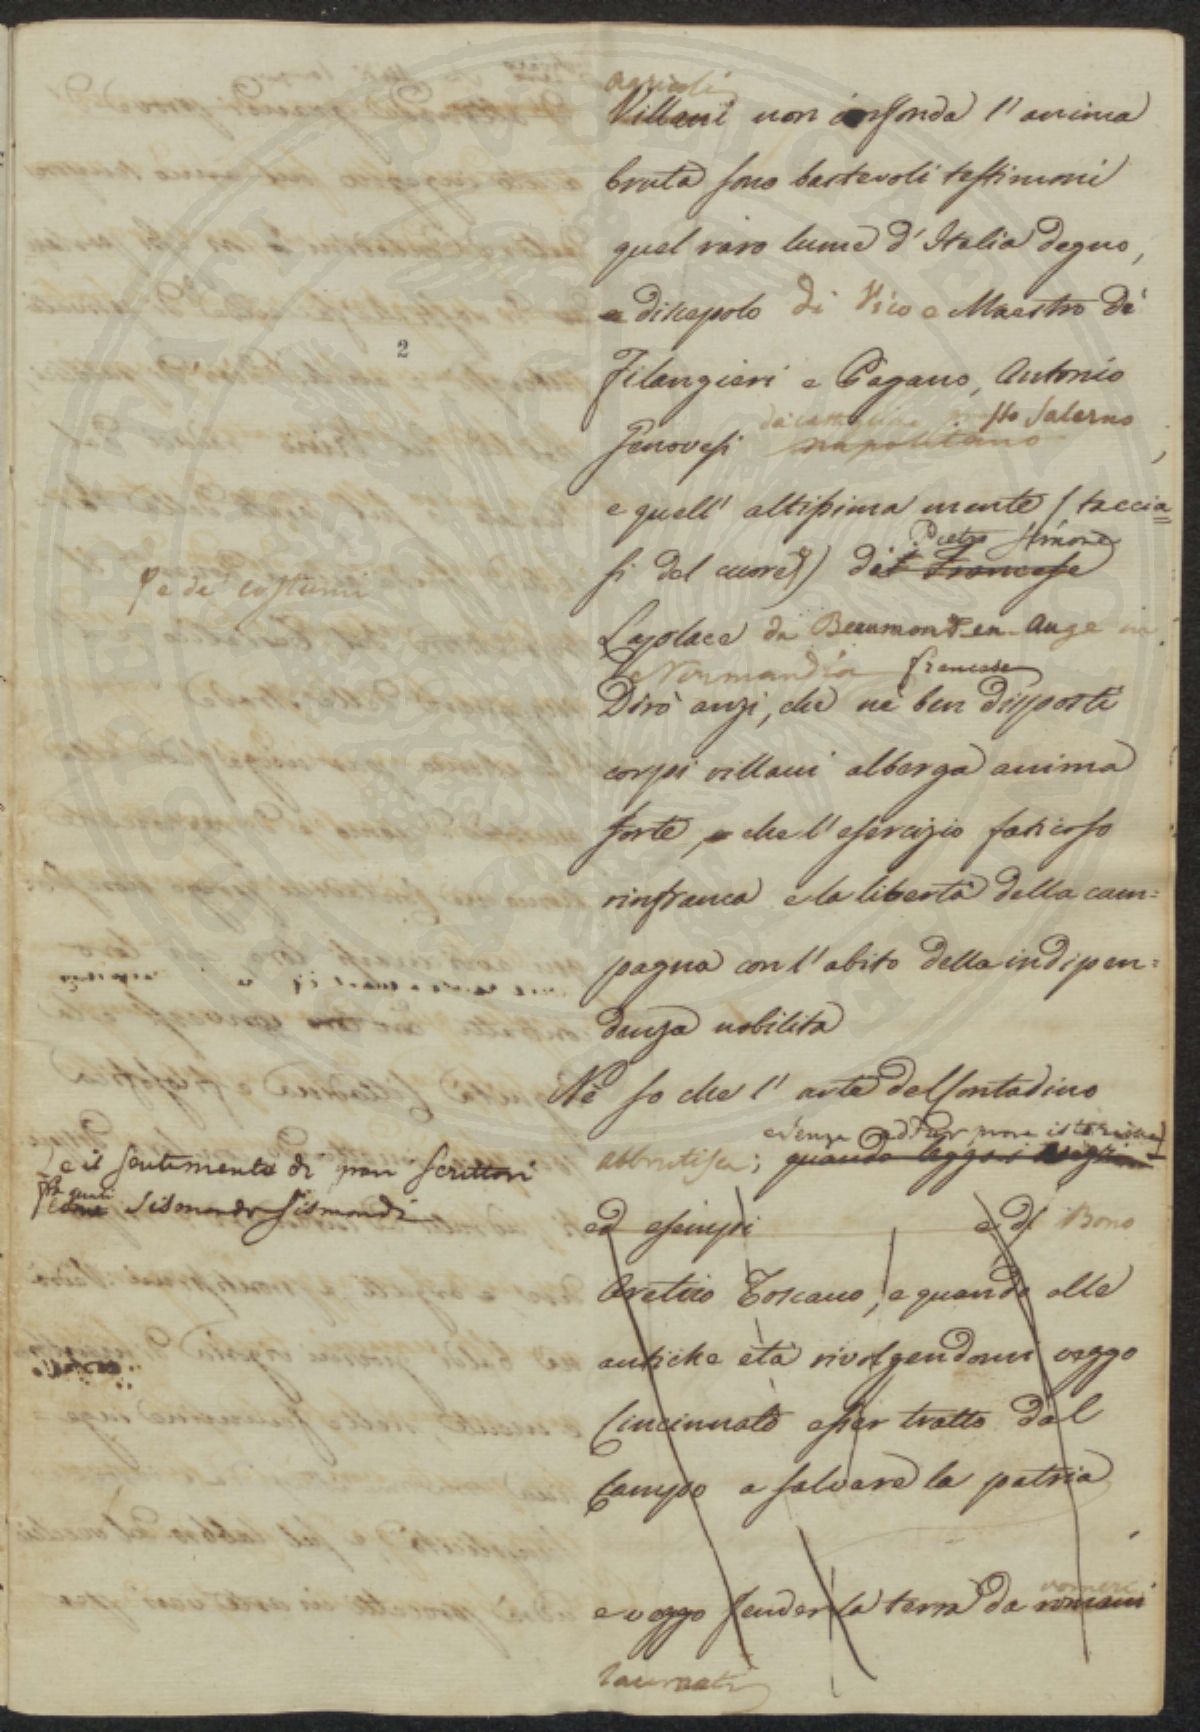 agricoli
Villani non infonda l'anima
bruta sono bastevoli testimoni
quel raro lume d'Italia degno,
e discepolo di Vico e Maestro de'
2
Filangieri e Pagano, Antonio
da Castiglione presso Salerno,
Genovesi napolitano
e quell' altissima mente (taccia=
Pietro Simone
si del cuore) del Francese
e de' costumi
Laplace da Beaumont-en-Auge in
Normandia francese
Dirò anzi, che ne' ben disposti
corpi villani alberga anima
forte, e che l'esercizio faticoso
rinfranca e la libertà della cam=
pagna con l'abito della indipen=
denza nobilita
Nè so che l'arte del Contadino
e senza addur prove istoriche
abbrutisca; quando leggo i
e il sentimento di pari scrittori
fra quali come Sismondo Sismondi
ed esempi e di Bono
Aretino Toscano, e quando alle
antiche età rivolgendomi veggo
Cincinnato esser tratto dal
Campo a salvare la patria
vomeri
e veggo fender la terra da romani
laureati